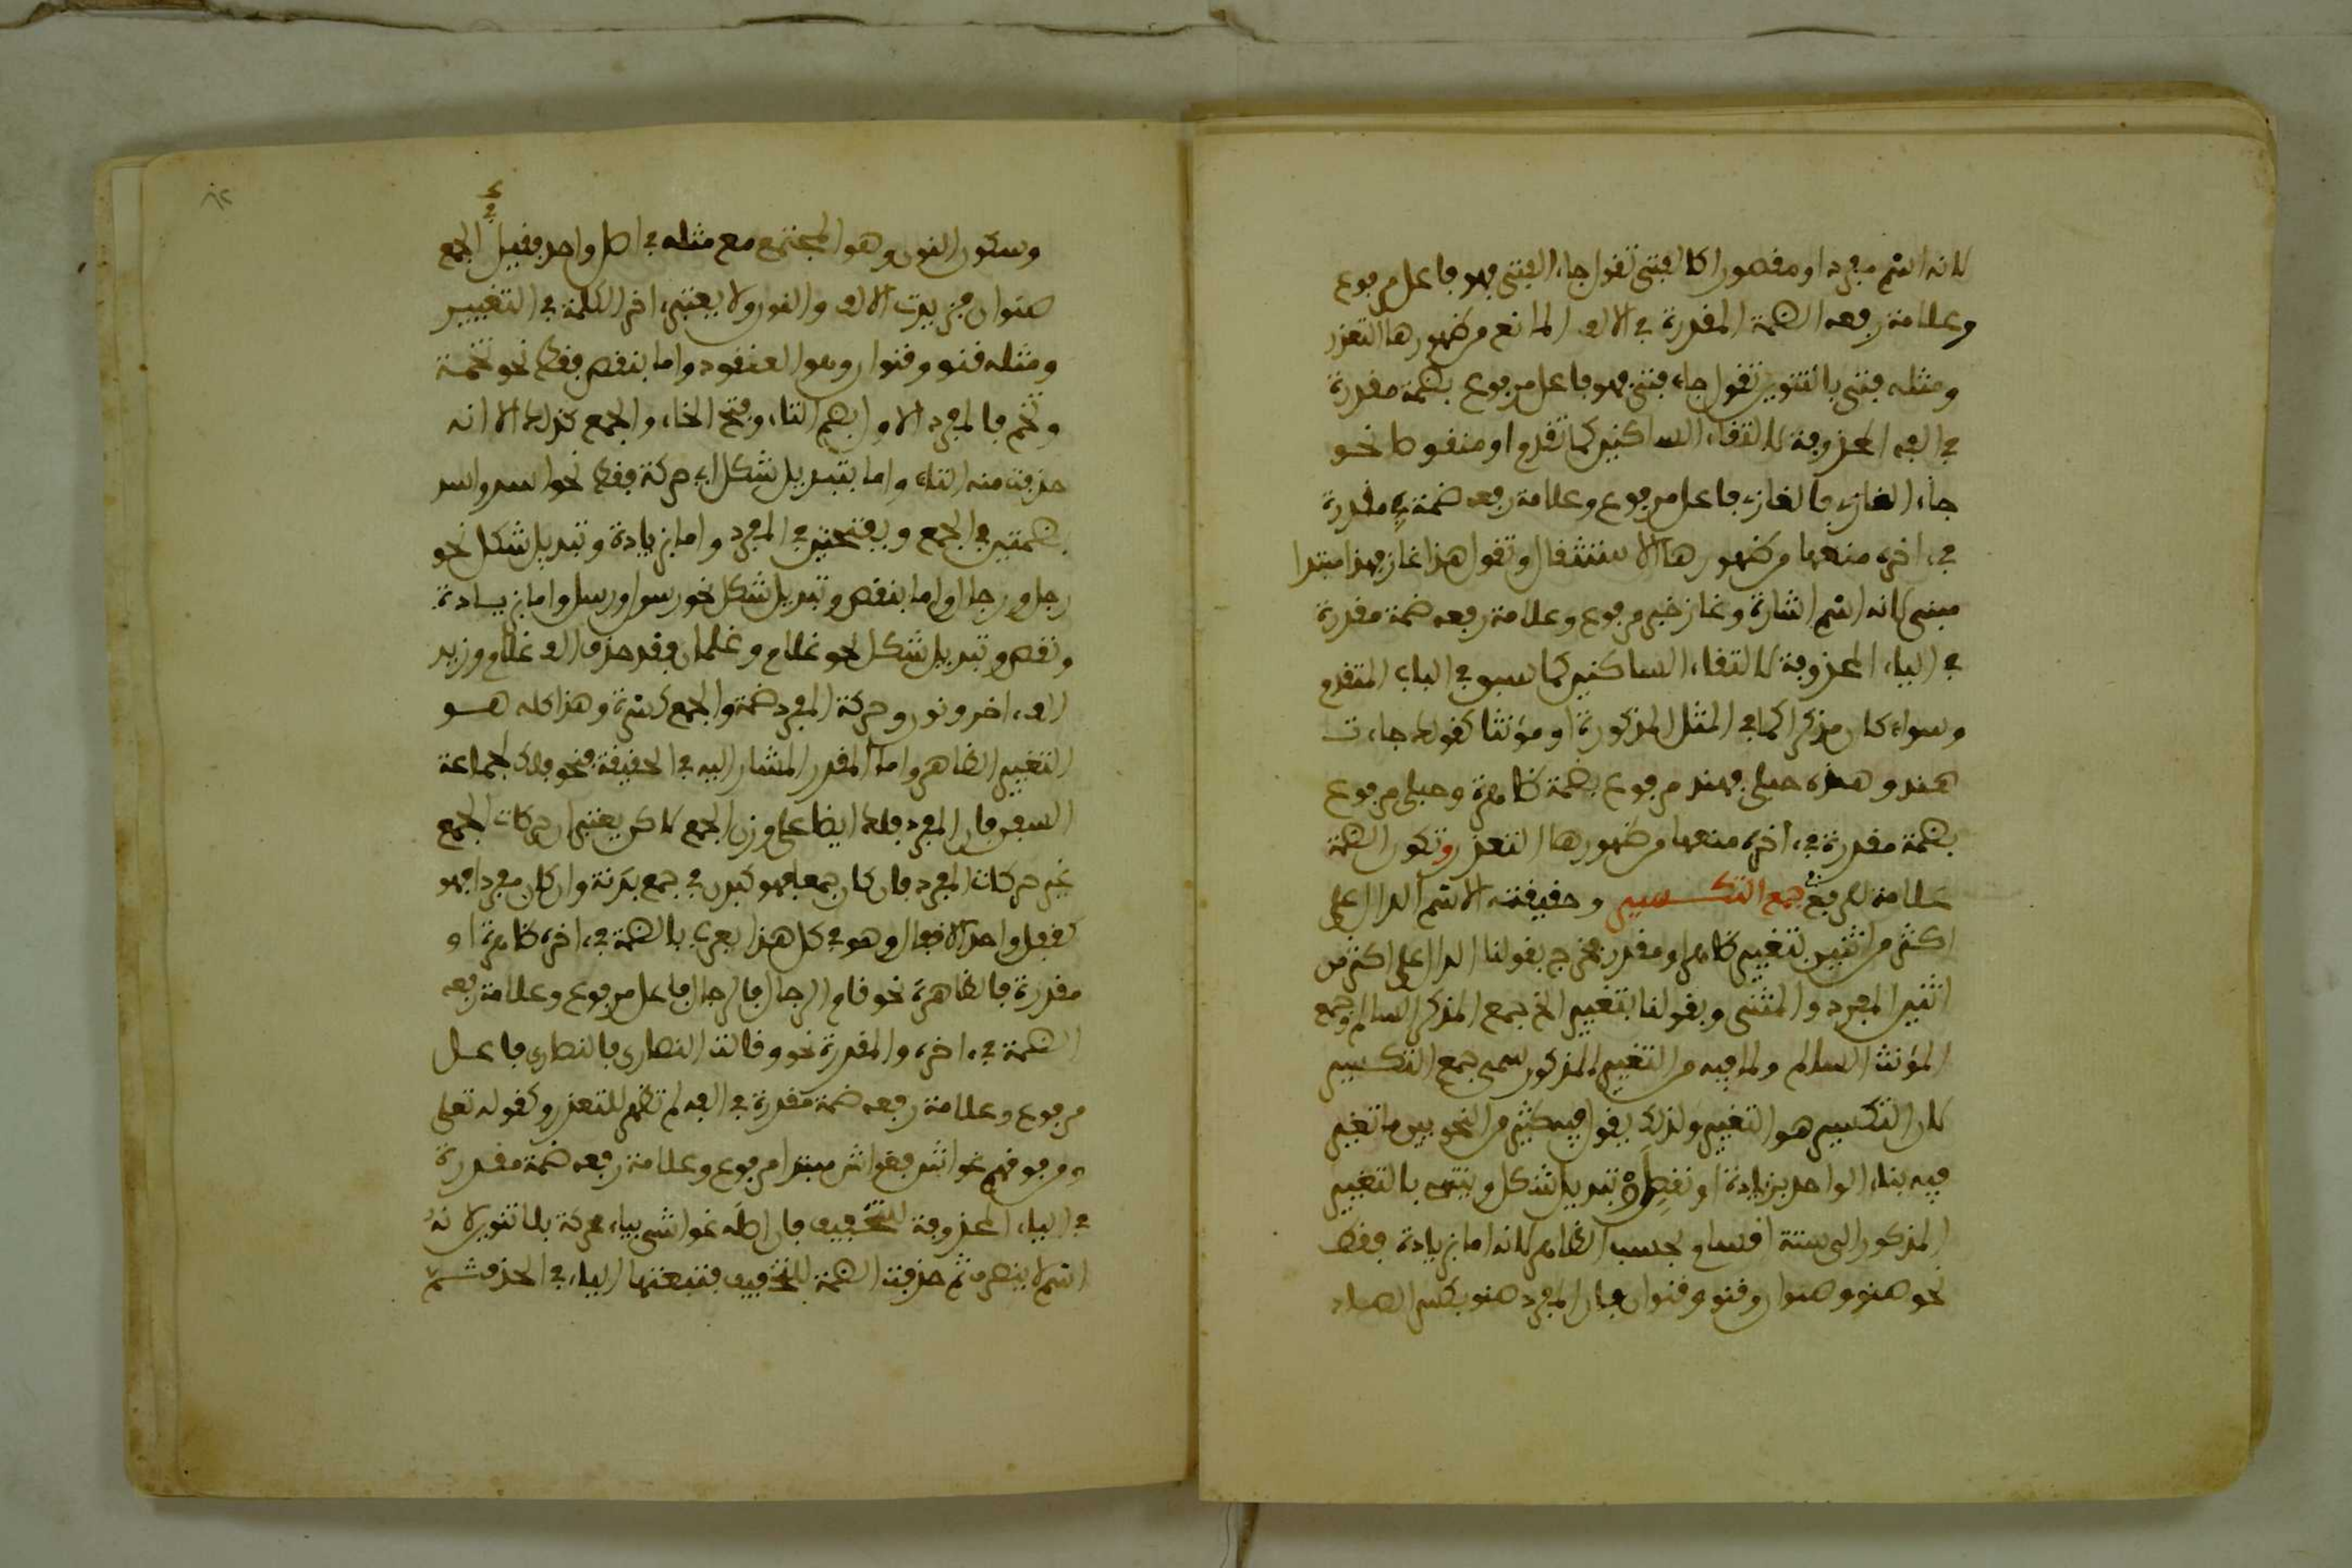 لانه اسم مفرد او مقصورا كالفتى تقول جاء الفتى فهو فاعل مرفوع
وعلامة رفعه الضمة المقدرة في الالف المانع من ظهورها التعذر
ومثله فتى بالتنوين تقول جاء فتى فهو فاعل مرفوع بضمة مقدرة
في الفه المحذوفة لالتقاء الساكنين كما تقدم او منقوصا نحو
جاء الغازي فالغازي فاعل مرفوع وعلامة رفعه ضمة مقدرة
في اخره منعها من ظهورها الاستثقال وتقول هذا غاز فهذا مبتدا
مبني لانه اسم اشارة وغاز خبر مرفوع وعلامة رفعه ضمة مقدرة
في الياء المحذوفة لالتقاء الساكنين كما سبق في الباب المتقدم
وسواء كان مذكرا كما في المثل المذكورة او مؤنثا كقولك جاءت
هند وهذه حبلى فهند مرفوع بضمة ظاهرة وحبلى مرفوع
بضمة مقدرة في اخره منعها من ظهورها التعذر وتكون الضمة
علامة للرفع في جمع التكسير وحقيقته الاسم الدال على
اكثر من اثنين بتغيير ظاهر او مقدر فخرج بقولنا الدال على اكثر من
اثنين المفرد والمثنى وبقولنا بتغيير الخ جمع المذكر السالم وجمع
المؤنث السالم ولما فيه من التغيير المذكور سمي جمع التكسير
لان التكسير هو التغيير ولذلك يقول فيه كثير من النحويين ما تغير
فيه بناء الواحد بزيادة او نقص او تبديل شكل وينتهي بالتغيير
المذكور الى ستة اقسام بحسب الظاهر لانه اما بزيادة فقط
نحو صنو وصنوان وقنو وقنوان فان المفرد صنو بكسر الصاد
وسكون النون وهو المجتمع مع مثله في اصل واحد فقيل في الجمع
صنوان فزيدت الالف والنون ولا يعتبر اخر الكلمة في التغيير
ومثله قنو وقنوان وهو العنقود واما بنقص فقط نحو تخمة
وتخم فالمفرد الاول بضم التاء وفتح الخاء والجمع كذلك الا انه
حذفت منه التاء واما بتبديل شكل اي حركة فقط نحو اسد واسد
بضمتين في الجمع وبفتحتين في المفرد واما بزيادة وتبديل شكل نحو
رجل ورجال واما بنقص وتبديل شكل نحو رسول ورسل واما بزيادة
ونقص وتبديل شكل نحو غلام وغلمان وقد حذف الف غلام وزيد
الف اخر ونون وحركة المفرد ضمة والجمع كسرة وهذا كله هو
التغيير الظاهر واما المقدر المشار اليه في الحقيقة فنحو فلك لجماعة
السفن فان المفرد فلك ايضا على وزن الجمع لاكن يعتبر ان حركات الجمع
غير حركات المفرد فان كان جمعا فهو كبدن في جمع بدنة وان كان مفردا فهو
كقفل واحد الاقفال وهو في كل هذا يعرب بالضمة في اخره ظاهرة او
مقدرة فالظاهرة نحو قام الرجال فالرجال فاعل مرفوع وعلامة رفعه
الضمة في اخره والمقدرة نحو وقالت النصارى فالنصارى فاعل
مرفوع وعلامة رفعه ضمة مقدرة في الفه لم تظهر للتعذر وكقوله تعلى
ومن فوقهم غواش فغواش مبتدا مرفوع وعلامة رفعه ضمة مقدرة
في الياء المحذوفة للتخفيف فان اصله غواشي بياء محركة بلا تنوين لانه
اسم لا ينصرف ثم حذفت الضمة للتخفيف فتبعتها الياء في الحذف ثم